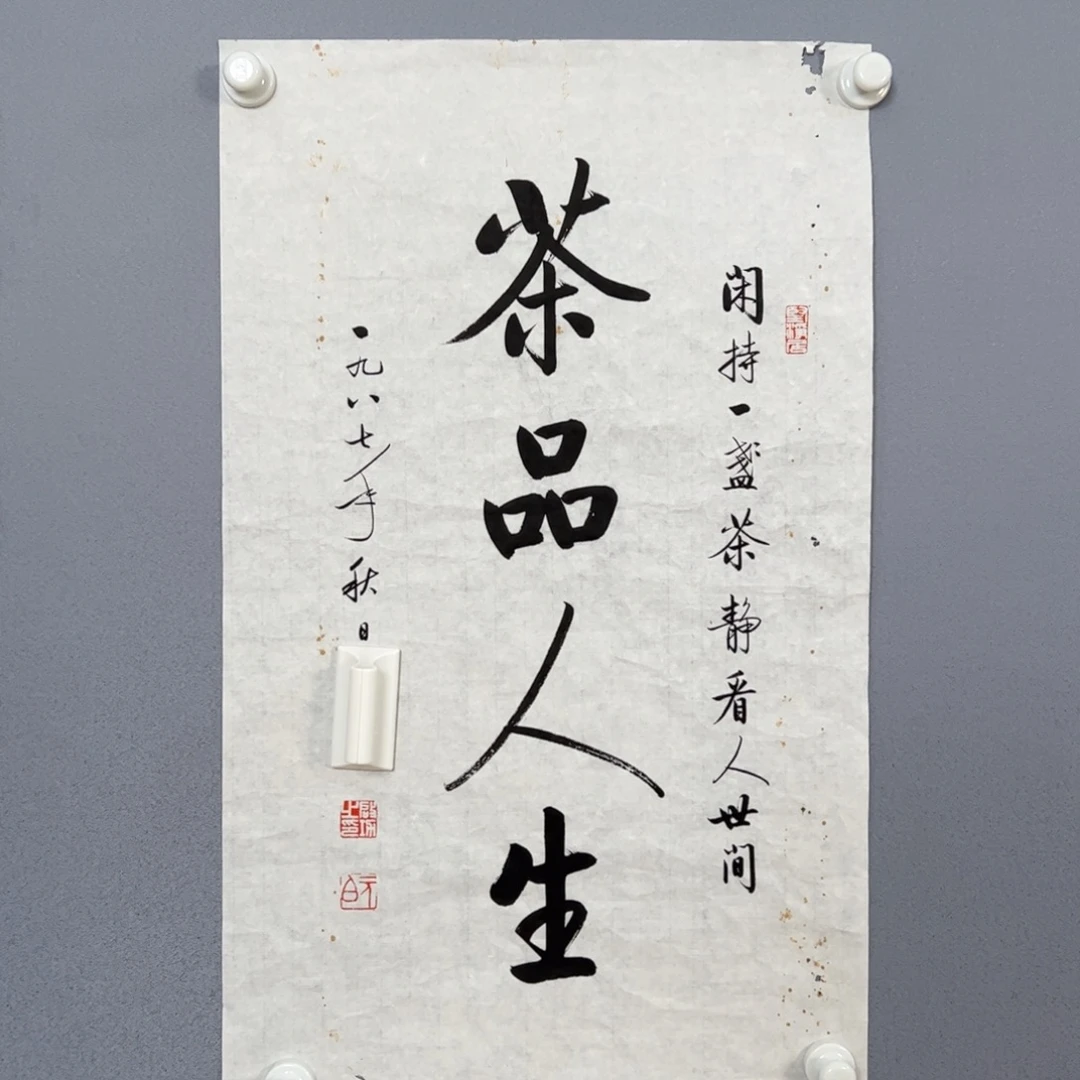 闲持一盏茶静看人世间
茶品人生
一九八七年秋日